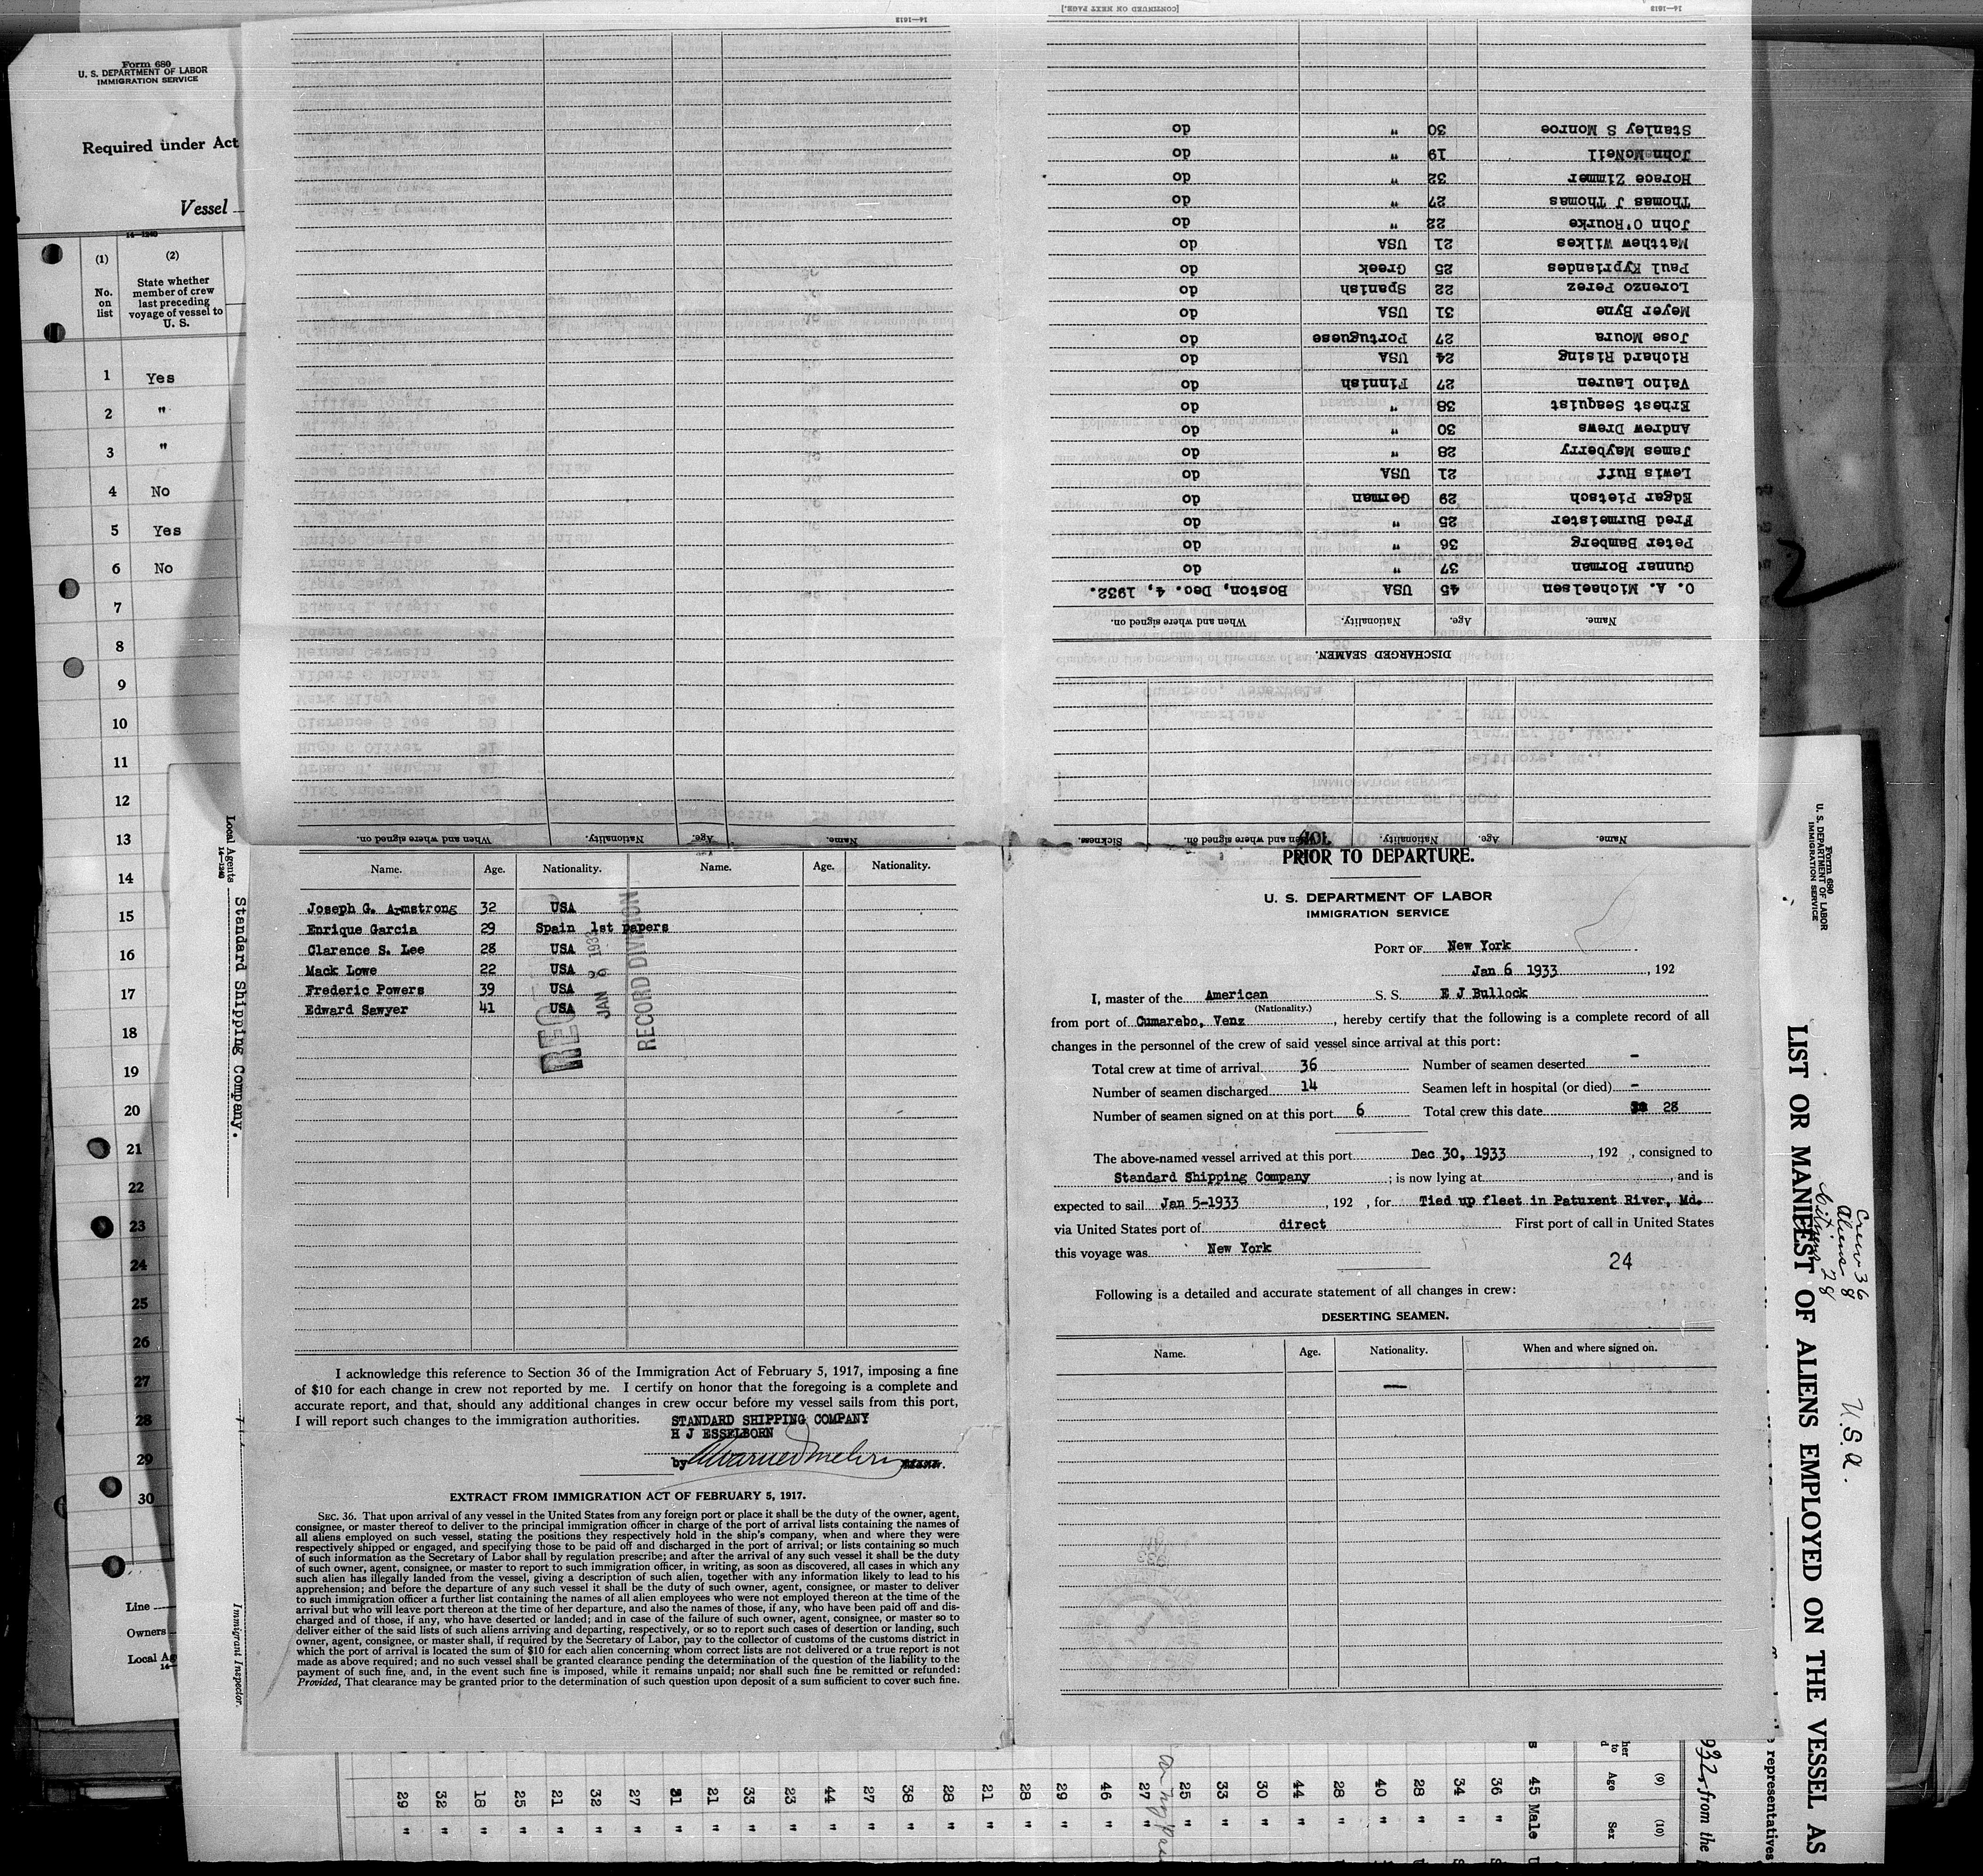 Form 680
U. S. DEPARTMENT OF LABOR
IMMIGRATION SERVICE
Required under Act
Vessel
14—1240
(1) (2)
No. on list
State whether member of crew last preceding voyage of vessel to U. S.
1 Yes
2 "
3 "
4 No
5 Yes
6 No
7
8
9
10
11
12
13
14
15
16
17
18
19
20
21
22
23
24
25
26
27
28
29
30
Line
Owners
Local Ag
Local Agents
14—1240
Standard Shipping Company.
Immigrant Inspector.
14—1613
Name. Age. Nationality. When and where signed on.
[CONTINUED ON NEXT PAGE.]
14—1613
Stanley S Monroe 30 " do
John McNeil 19 " do
Horace Zimmer 32 " do
Thomas J Thomas 27 " do
John O'Rourke 22 " do
Matthew Wilkes 21 USA do
Paul Kypriandes 25 Greek do
Lorenzo Perez 22 Spanish do
Meyer Byne 31 USA do
Jose Moura 27 Portuguese do
Richard Rising 24 USA do
Vaino Lauren 27 Finnish do
Erhest Seaquist 38 " do
Andrew Drews 30 " do
James Mayberry 28 " do
Lewis Huff 21 USA do
Edgar Pietsch 29 German do
Fred Burmeister 25 " do
Peter Bamberg 36 " do
Gunnar Borman 37 " do
O. A. Michaelsen 45 USA Boston, Dec. 4, 1932.
Name. Age. Nationality. When and where signed on.
DISCHARGED SEAMEN.
Name. Age. Nationality. When and where signed on. Sickness.
Name. Age. Nationality. Name. Age. Nationality.
Joseph G. Armstrong 32 USA
Enrique Garcia 29 Spain 1st papers
Clarence S. Lee 28 USA
Mack Lowe 22 USA
Frederic Powers 39 USA
Edward Sawyer 41 USA
JAN 6 1933
RECORD DIVISION
I acknowledge this reference to Section 36 of the Immigration Act of February 5, 1917, imposing a fine
of $10 for each change in crew not reported by me. I certify on honor that the foregoing is a complete and
accurate report, and that, should any additional changes in crew occur before my vessel sails from this port,
I will report such changes to the immigration authorities.
STANDARD SHIPPING COMPANY
H J ESSELBORN
by
EXTRACT FROM IMMIGRATION ACT OF FEBRUARY 5, 1917.
SEC. 36. That upon arrival of any vessel in the United States from any foreign port or place it shall be the duty of the owner, agent,
consignee, or master thereof to deliver to the principal immigration officer in charge of the port of arrival lists containing the names of
all aliens employed on such vessel, stating the positions they respectively hold in the ship's company, when and where they were
respectively shipped or engaged, and specifying those to be paid off and discharged in the port of arrival; or lists containing so much
of such information as the Secretary of Labor shall by regulation prescribe; and after the arrival of any such vessel it shall be the duty
of such owner, agent, consignee, or master to report to such immigration officer, in writing, as soon as discovered, all cases in which any
such alien has illegally landed from the vessel, giving a description of such alien, together with any information likely to lead to his
apprehension; and before the departure of any such vessel it shall be the duty of such owner, agent, consignee, or master to deliver
to such immigration officer a further list containing the names of all alien employees who were not employed thereon at the time of the
arrival but who will leave port thereon at the time of her departure, and also the names of those, if any, who have been paid off and dis-
charged and of those, if any, who have deserted or landed; and in case of the failure of such owner, agent, consignee, or master so to
deliver either of the said lists of such aliens arriving and departing, respectively, or so to report such cases of desertion or landing, such
owner, agent, consignee, or master shall, if required by the Secretary of Labor, pay to the collector of customs of the customs district in
which the port of arrival is located the sum of $10 for each alien concerning whom correct lists are not delivered or a true report is not
made as above required; and no such vessel shall be granted clearance pending the determination of the question of the liability to the
payment of such fine, and, in the event such fine is imposed, while it remains unpaid; nor shall such fine be remitted or refunded:
Provided, That clearance may be granted prior to the determination of such question upon deposit of a sum sufficient to cover such fine.
PRIOR TO DEPARTURE.
U. S. DEPARTMENT OF LABOR
IMMIGRATION SERVICE
PORT OF New York
Jan 6 1933, 192
I, master of the American S. S. E J Bullock
(Nationality.)
from port of Cumarebo, Venz, hereby certify that the following is a complete record of all
changes in the personnel of the crew of said vessel since arrival at this port:
Total crew at time of arrival 36 Number of seamen deserted -
Number of seamen discharged 14 Seamen left in hospital (or died) -
Number of seamen signed on at this port 6 Total crew this date 28
The above-named vessel arrived at this port Dec 30, 1933, 192 , consigned to
Standard Shipping Company; is now lying at , and is
expected to sail Jan 5-1933, 192 , for Tied up fleet in Patuxent River, Md.
via United States port of direct First port of call in United States
this voyage was New York
24
Following is a detailed and accurate statement of all changes in crew:
DESERTING SEAMEN.
Name. Age. Nationality. When and where signed on.
—
Form 680
U. S. DEPARTMENT OF LABOR
IMMIGRATION SERVICE
LIST OR MANIFEST OF ALIENS EMPLOYED ON THE VESSEL AS
Crew 36
Aliens 8
Citizens 28
U.S.A.
representatives
932, from the
(9) (10)
Age Sex
45 Male
36 "
34 "
28 "
40 "
28 "
44 "
30 "
33 "
25 "
27 "
46 "
29 "
28 "
21 "
28 "
38 "
27 "
44 "
23 "
33 "
21 "
31 "
27 "
32 "
21 "
25 "
18 "
32 "
29 "